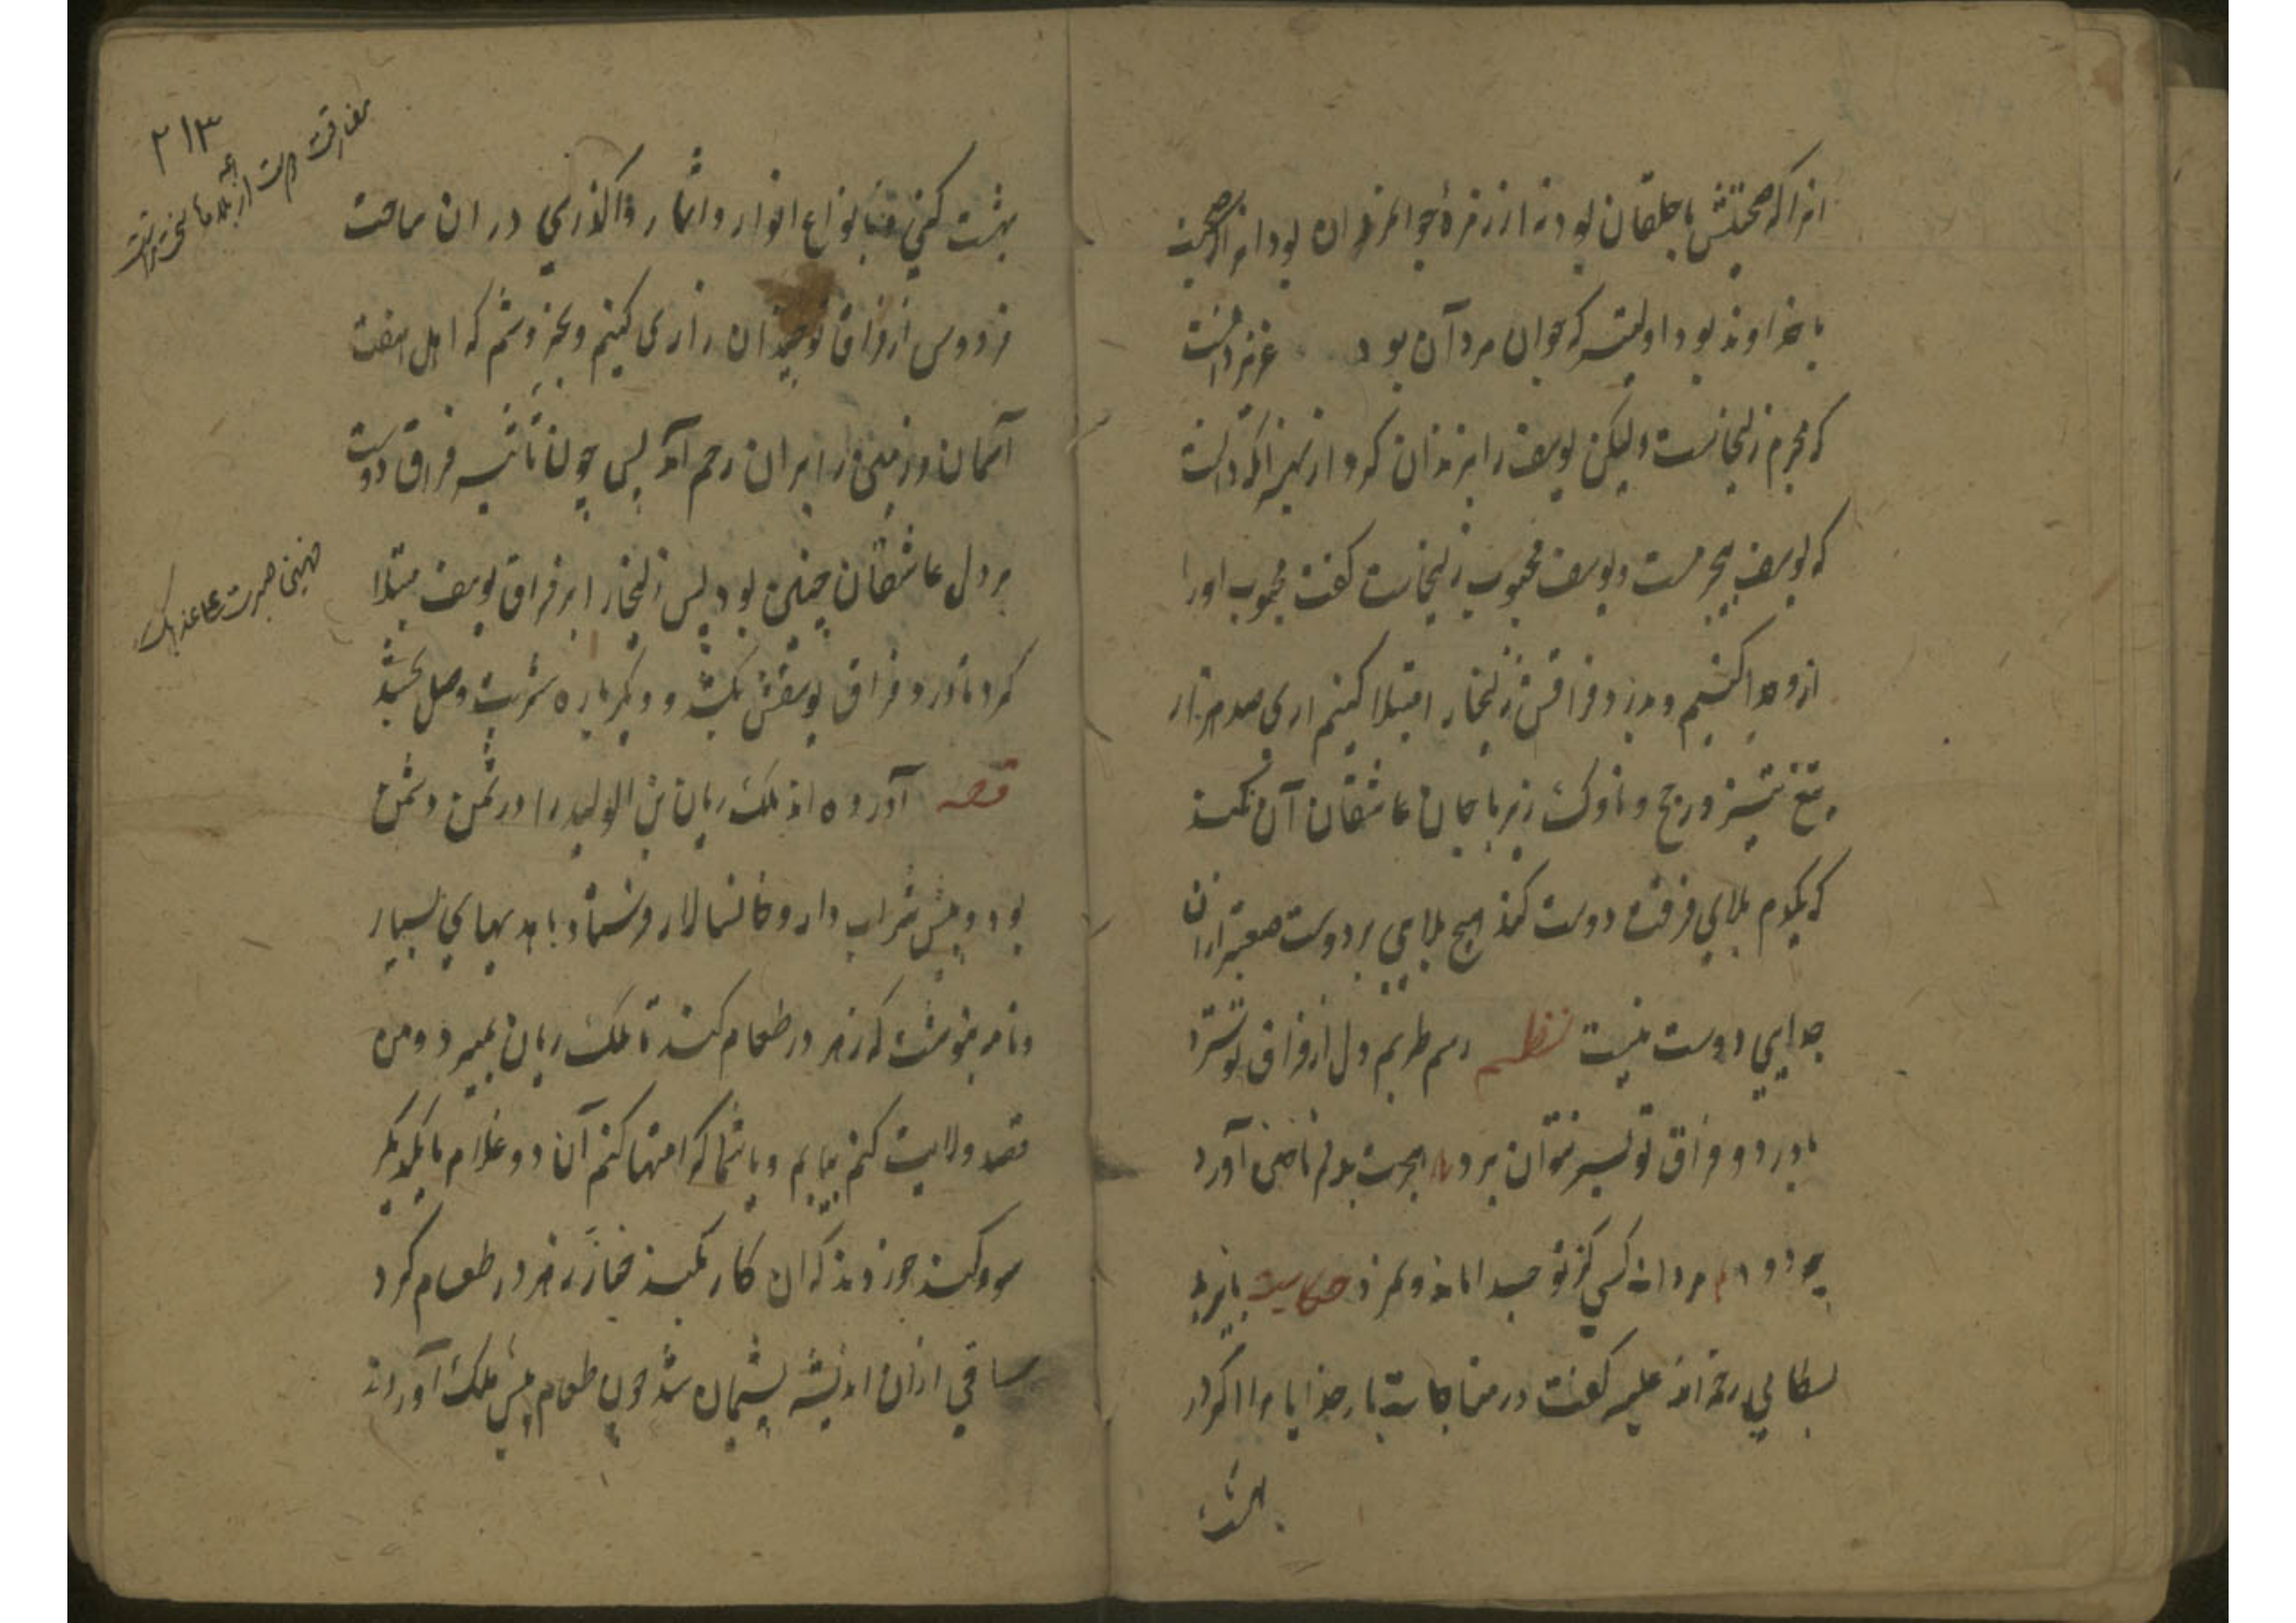 انرا که صحبتش با خلقان بود نه از زمرهٔ جوانمردان بود انرا که صحبت
با خداوند بود او لیته که جوان مرد آن بود عزیز دانست
که مجرم زلیخاست ولیکن یوسف را بزندان کرد از بهر انکه دانست
که یوسف بیجرمست و یوسف محبوب زلیخاست کفت محبوب او را
ازو جدا کنیم و بدرد فراقش زلیخا را مبتلا کنیم اری صد هزار
تیغ تیز و رمح و ناوک زیر با جان عاشقان آن نکند
که یکدم بلای فرقت دوست کند هیچ بلایی بر دوست صعبتر از ان
جدایی دوست نیست نظم رسم طربم دل از فراق تو سترد
با درد و فراق تو بسر نتوان برد هجرت بدلم ناخنی آورد
مردانه کسی کز تو جدا ماند و نمرد حکایت بایزید
بسطامی رحمة الله علیه کفت در مناجات بار خدایا مرا اکر در
بهشت
۲۱۳
مفارقت دوست از همه بلاها سخت تر است
بهشت کنی با نواع انوار و اثمار و اکذری در ان ساعت
فردوس از فراق تو چندان زاری کنیم و بخروشم که اهل هفت
آسمان و زمین را بر ان رحم آید پس چون تاثیر فراق دوست
بر دل عاشقان چنین بود پس زلیخا را بر فراق یوسف مبتلا
کرد تا درد فراق یوسفش بکشد و دیکر باره شربت وصل بخشد
قصه آورده اند ملک ریان بن الولید را در یمن دشمن
بود و پیش شراب دار و خانسالار فرستاد با هدیهای بسیار
و نامه نوشت که زهر در طعام کنند تا ملک ریان بمیرد و من
قصد ولایت کنم بیابم و با شما کرامتها کنم آن دو غلام با یکدیکر
سوکند خوردند که ان کار بکنند خباز زهر در طعام کرد
ساقی از ان اندیشه پشیمان شد چون طعام پیش ملک آوردند